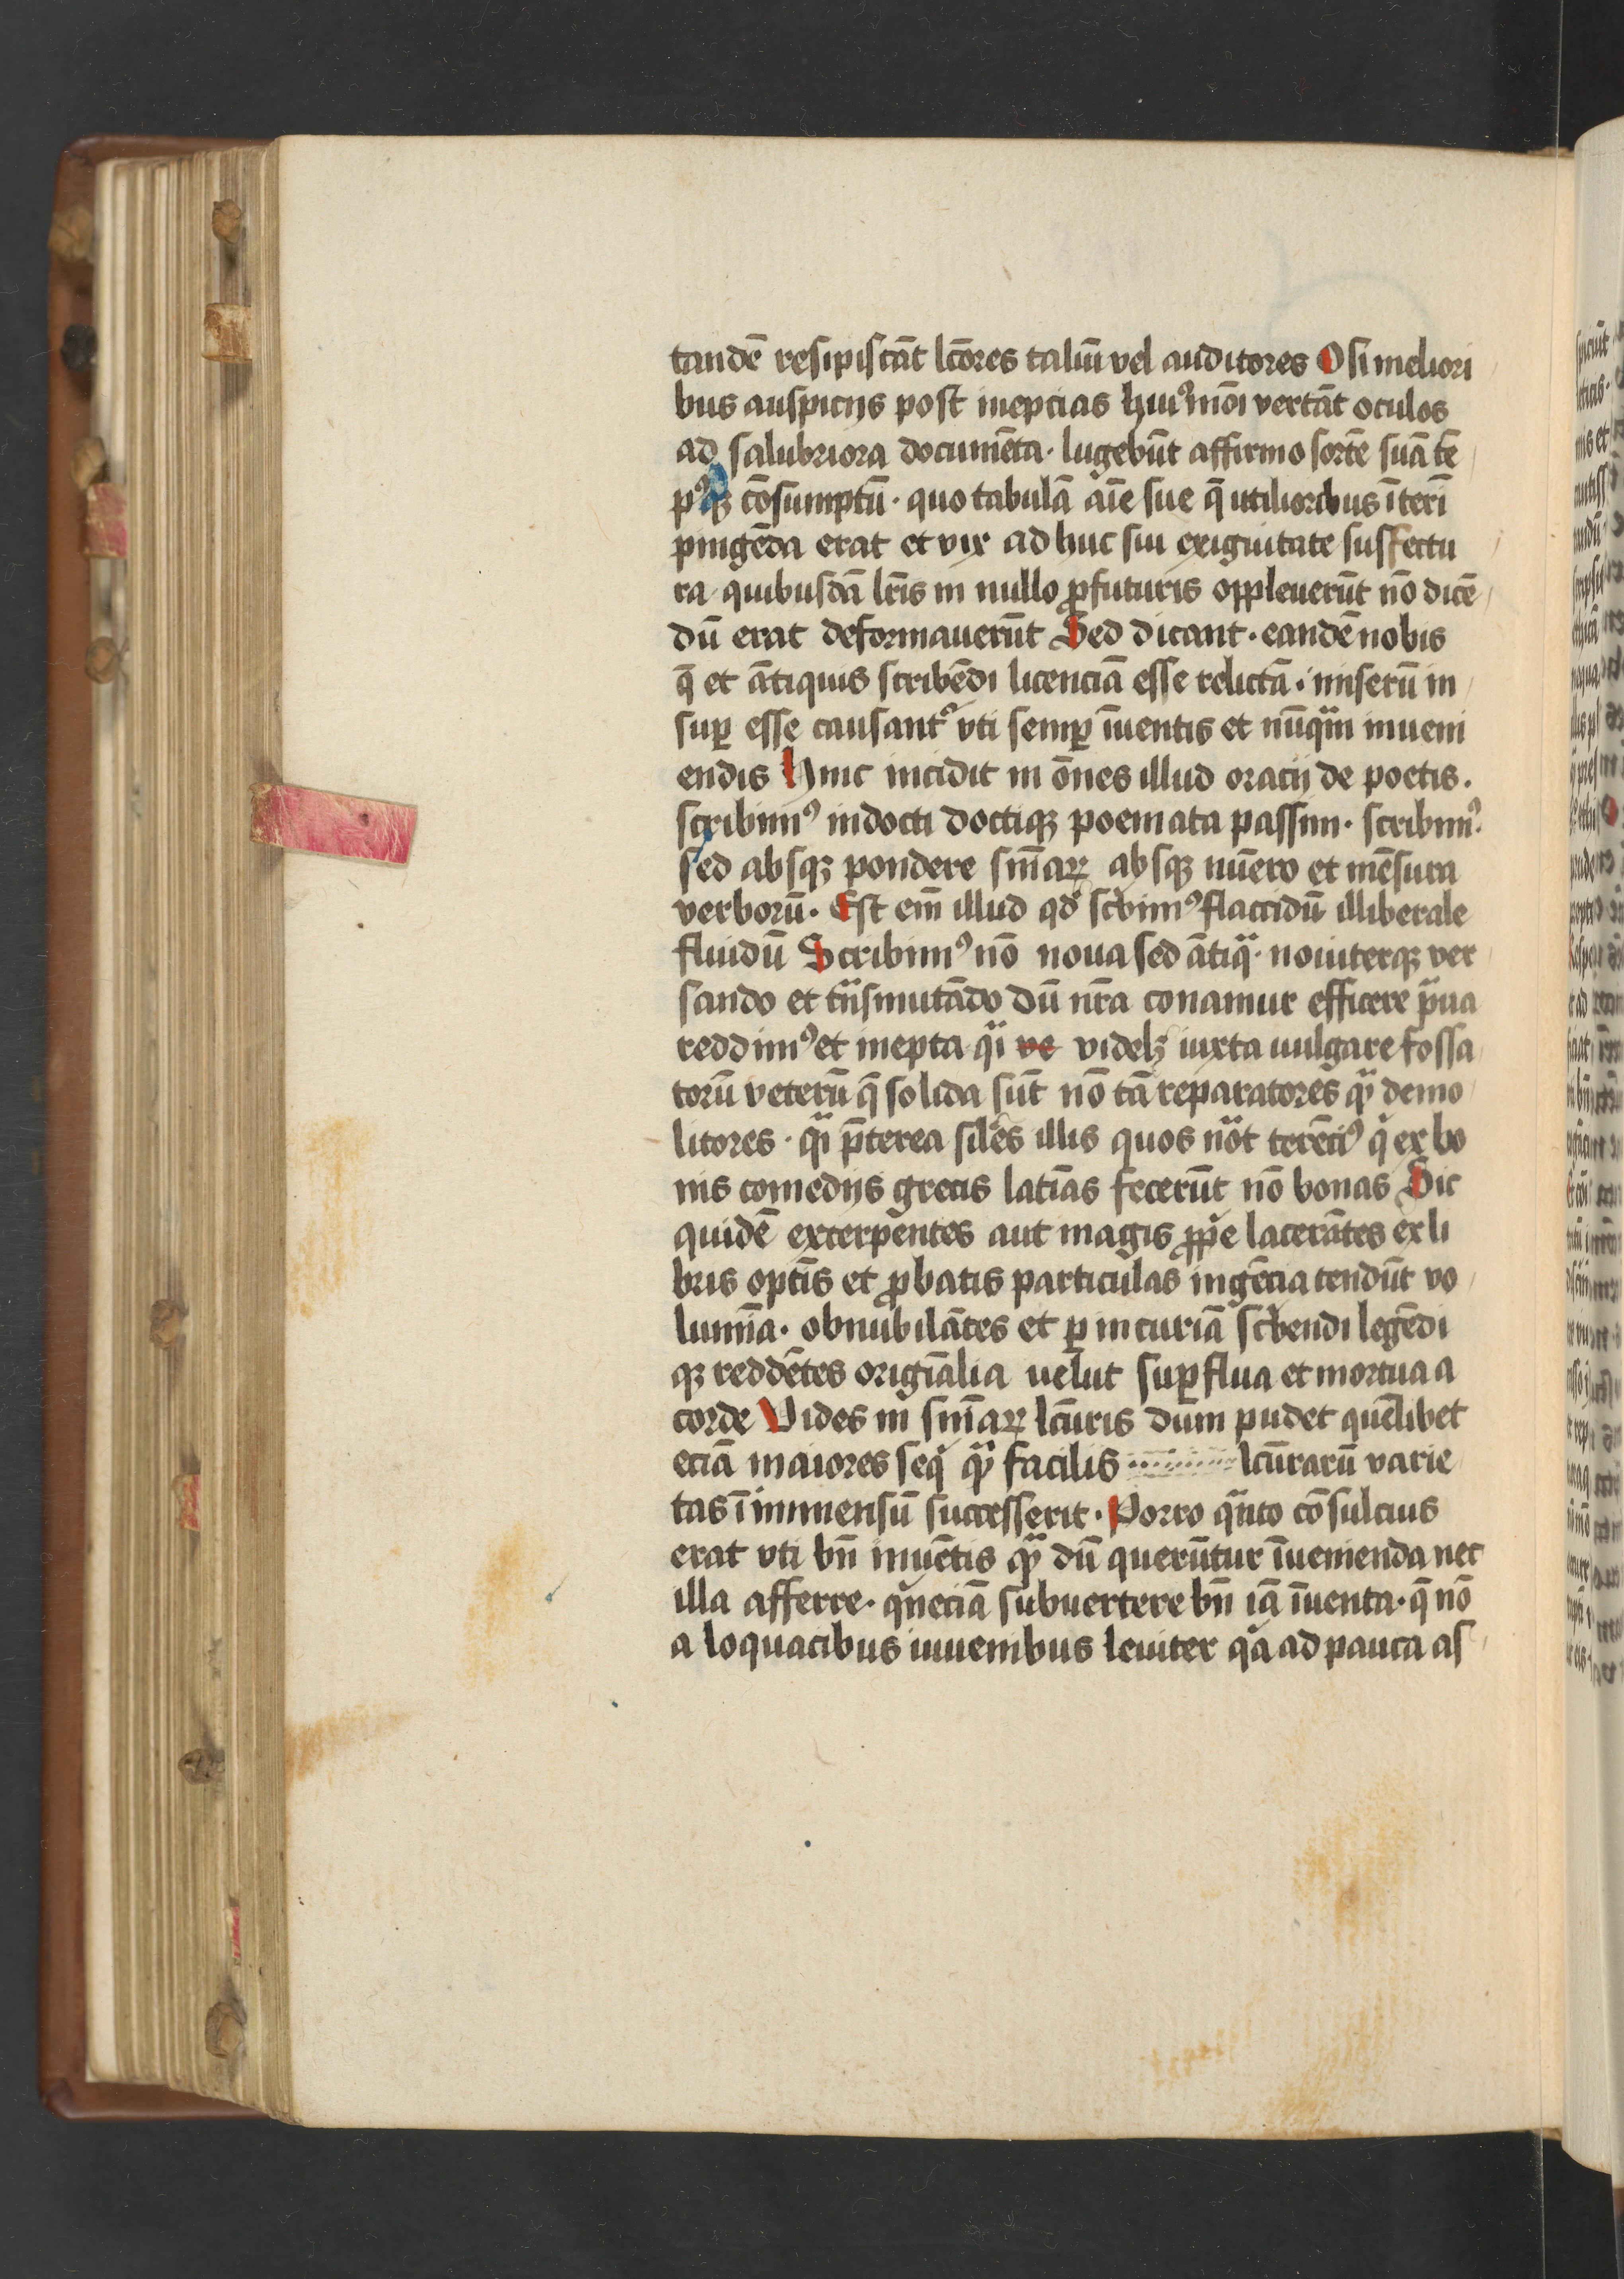 tandē resipiscāt lc̄ores taliū vel auditores O si meliori
bus auspicijs post inepcias huiꝰmōi vertāt oculos
ad salubriora documēta · lugebūt affirmo sortē suā tē
pꝰqꝫ cōsumptū · quo tabulā aīe sue q̄ utilioribus īterī
pingēda erat et vix ad huc sui exiguitate suffectu
ra quibusdā lr̄is in nullo ꝓfuturis oppleuerūt nō dicē
dū erat deformauerūt Sed dicant · eandē nobis
q̄ et ātiquis scribēdi licenciā esse relictā · miserū in
suꝑ esse causant᷑ vti semꝑ īuentis et nūqᷓm inueni
endis Hinc incidit in ōnes illud oracij de poetis ·
scribimꝰ indocti doctiqꝫ poemata passim · scribimꝰ ·
sed absqꝫ pondere sniāꝝ absqꝫ nūero et mēsura
verborū · Est em̄ illud qd̄ sc̍bimꝰ flaccidū illiberale
fluidū Scribimꝰ nō noua sed ātiqᷓ · nouiterqꝫ ver
sando et tᷓnsmutādo dū nr̄a conamur efficere pᷓua
reddimꝰ et inepta qᷓi ve videlꝫ iuxta uulgare fossa
torū veterū q̄ solida sūt nō tā reparatores qᷓ demo
litores · qᷓi p̄terea siles illis quos nōt terēciꝰ q̍ ex bo
nis comedijs grecis latīas fecerūt nō bonas Sic
quidē excerpentes aut magis ꝓp̍e lacerātes ex li
bris optīs et ꝓbatis particulas ingēcia tendūt vo
lumīa · obnubilātes et ꝑ incuriā sc̍bendi legēdi
qꝫ reddētes origīalia uelut suꝑflua et mortua a
corde Vides in sniāꝝ lc̄uris dum pudet quēlibet
eciā maiores seq̍ qᷓ facilis lc̄urarū varie
tas ī immensū successerit · Porro qᷓnto cōsulcius
erat vti bn̄ inuētis qᷓ dū querūtur īuenienda nec
illa afferre · q̍neciā subuertere bn̄ iā īuenta · q̄ nō
a loquacibus iuuenibus leuiter q̍a ad pauca as